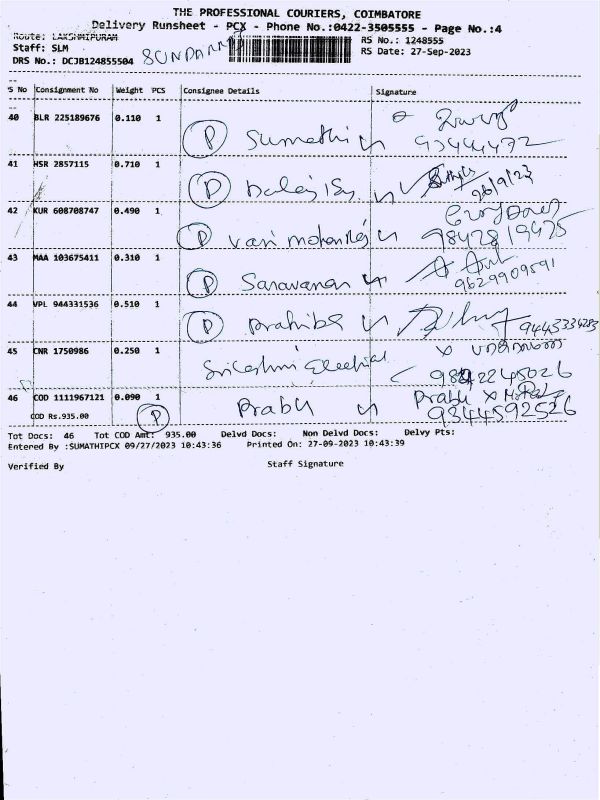 THE PROFESSIONAL COURIERS, COIMBATORE
Delivery Runsheet - PCX - Phone No.:0422-3505555 - Page No.:4
Route: LAKSHMIPURAM
RS No.: 1248555
Staff: SLM
RS Date: 27-Sep-2023
DRS No.: DCJB124855504
S No Consignment No Weight PCS Consignee Details Signature
40 BLR 225189676 0.110 1
P Sumathi
41 HSR 2857115 0.710 1
P 26/9/23
42 KUR 608708747 0.490 1
P 9842819475
43 MAA 103675411 0.310 1
P Saravanan 9629909591
44 VPL 944331536 0.510 1
P 9445334283
45 CNR 1750986 0.250 1
46 COD 1111967121 0.090 1
P Prabu Prabu X
COD Rs.935.00 9344592526
Tot Docs: 46 Tot COD Amt: 935.00 Delvd Docs: Non Delvd Docs: Delvy Pts:
Entered By :SUMATHIPCX 09/27/2023 10:43:36 Printed On: 27-09-2023 10:43:39
Verified By Staff Signature